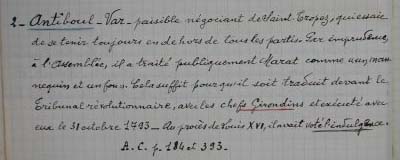 2 - Antiboul - Var - paisible négociant de Saint-Tropez, qui essaie
de se tenir toujours en dehors de tous les partis. Par imprudence,
à l'Assemblée, il a traité publiquement Marat comme un man
nequin et un fou. Cela suffit pour qu'il soit traduit devant le
Tribunal révolutionnaire, avec les chefs Girondins et exécuté avec
eux le 31 octobre 1793 - Au procès de Louis XVI, il avait voté l'indulgence.
A. C. p. 184 et 393.